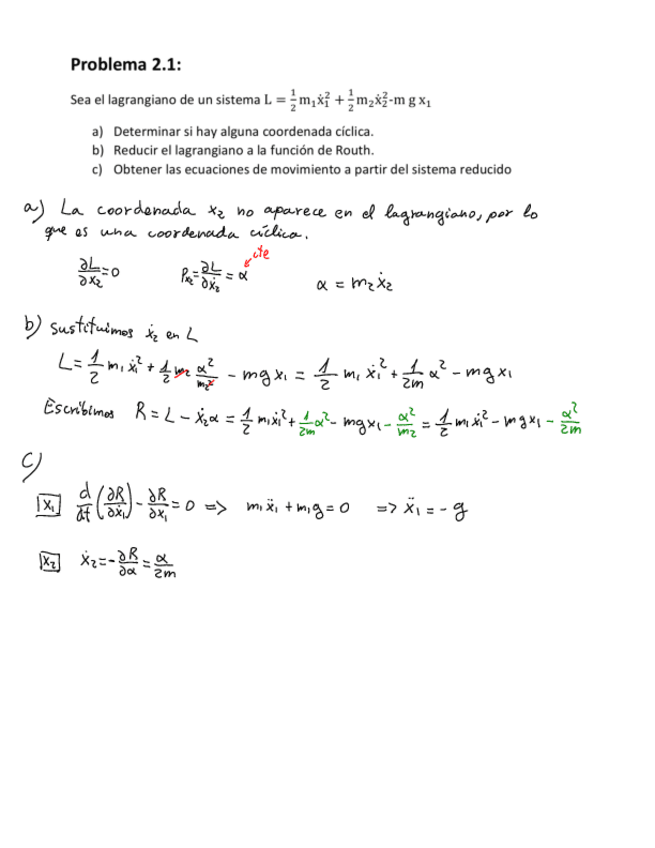 Problema 2.1:
Sea el lagrangiano de un sistema L = ½ m₁ẋ₁² + ½ m₂ẋ₂² - m g x₁
a) Determinar si hay alguna coordenada cíclica.
b) Reducir el lagrangiano a la función de Routh.
c) Obtener las ecuaciones de movimiento a partir del sistema reducido
a) La coordenada x₂ no aparece en el lagrangiano, por lo
que es una coordenada cíclica.
cte
∂L/∂x₂ = 0 Pₓ₂ = ∂L/∂ẋ₂ = α α = m₂ẋ₂
b) Sustituimos ẋ₂ en L
L = 1/2 m₁ẋ₁² + 1/2 m₂ α²/m₂² - mgx₁ = 1/2 m₁ẋ₁² + 1/2m α² - mgx₁
Escribimos R = L - ẋ₂α = 1/2 m₁ẋ₁² + 1/2m α² - mgx₁ - α²/m₂ = 1/2 m₁ẋ₁² - mgx₁ - α²/2m
c)
x₁ d/dt (∂R/∂ẋ₁) - ∂R/∂x₁ = 0 => m₁ẍ₁ + m₁g = 0 => ẍ₁ = -g
x₂ ẋ₂ = -∂R/∂α = α/2m